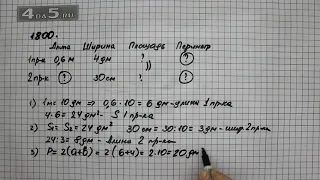 4DA5.RU
1800.
Длина Ширина Площадь Периметр
1 пр-к 0,6 м 4 дм ? ?
))
2 пр-к ? 30 см ? ?
1) 1м = 10 дм ⇒ 0,6 · 10 = 6 дм - длина 1 пр-ка
4 · 6 = 24 дм² - S 1 пр-ка
2) S₁ = S₂ = 24 дм² 30 см = 30 : 10 = 3 дм - шир 2 пр-ка
24 : 3 = 8 дм - длина 2 пр-ка
3) P = 2(a+b) = 2(6+4) = 2·10 = 20 дм